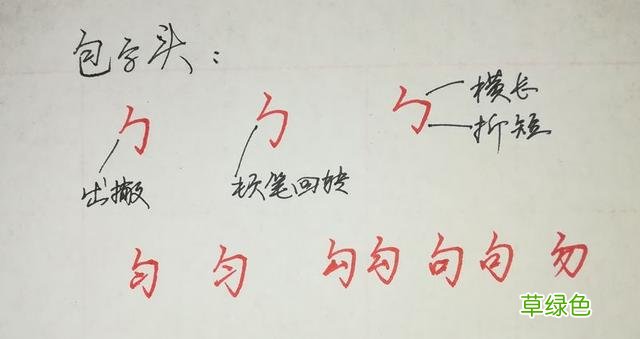 包字头：
勹 勹 勹 横长
折短
出撇 顿笔回转
匀 匀 勾 勾 句 句 勿
草绿色